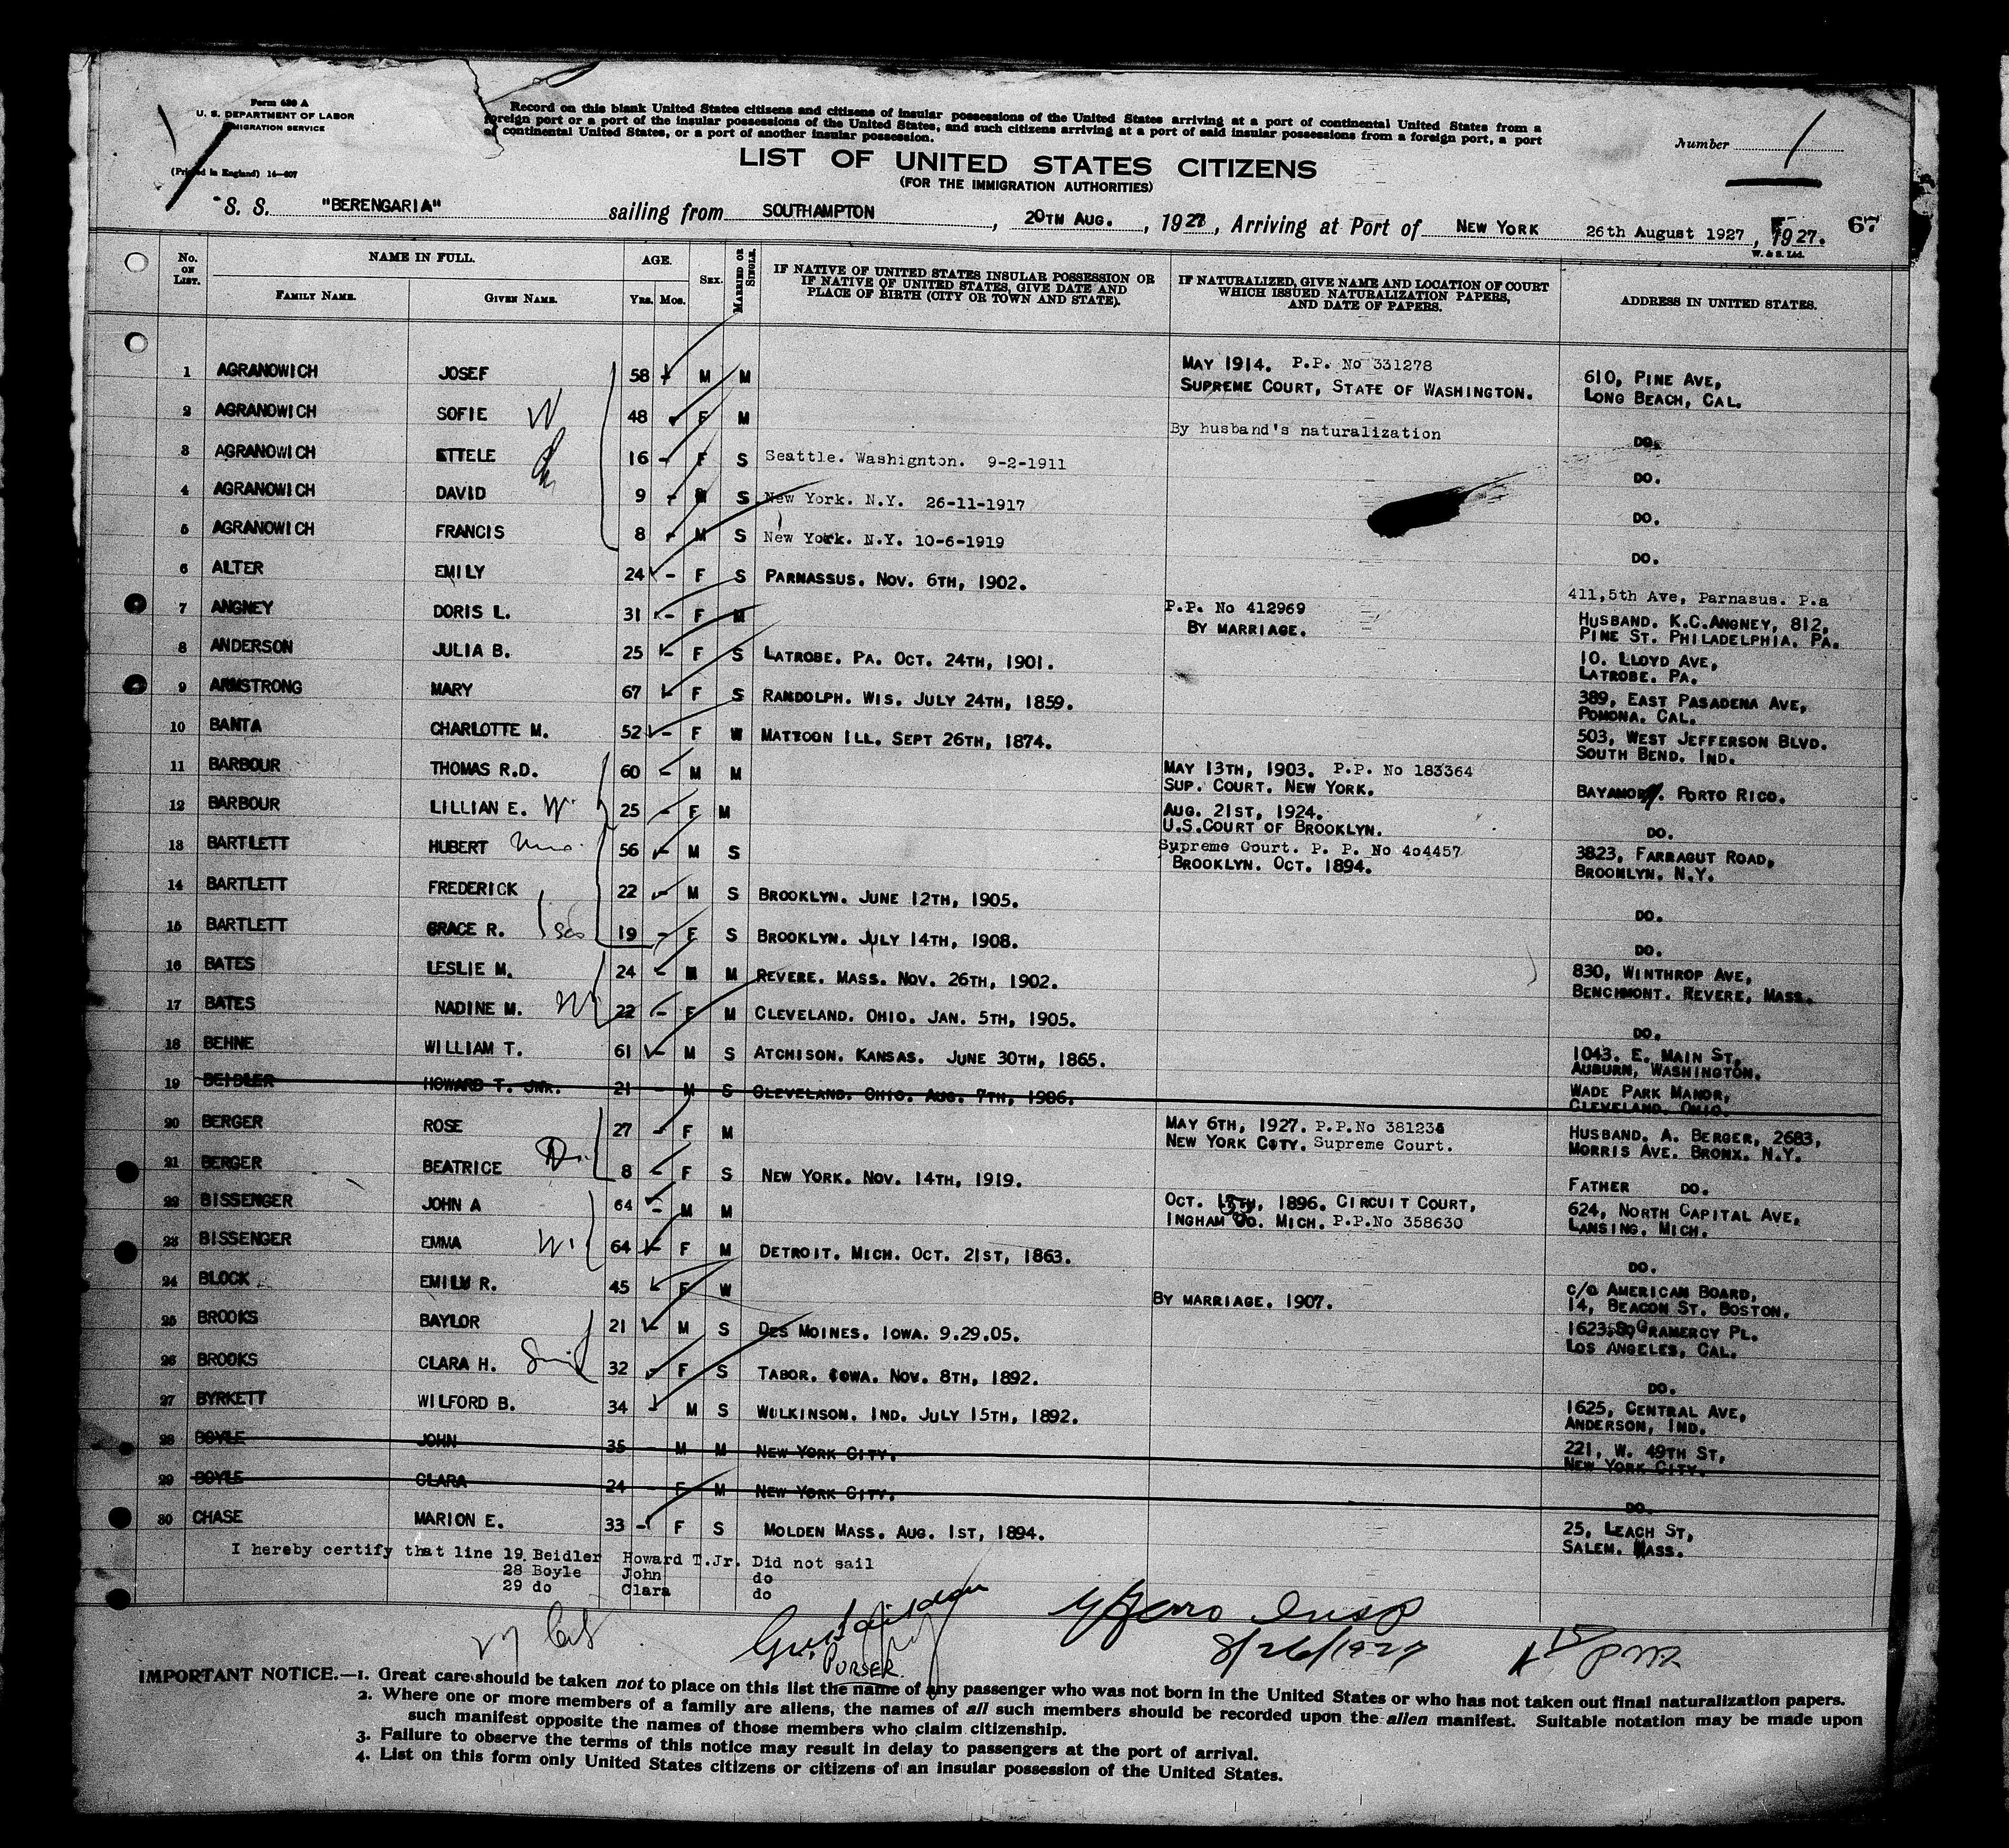 Form 630 A
U. S. DEPARTMENT OF LABOR
MIGRATION SERVICE
(Printed in England) 14—607
Record on this blank United States citizens and citizens of insular possessions of the United States arriving at a port of continental United States from a
foreign port or a port of the insular possessions of the United States, and such citizens arriving at a port of said insular possessions from a foreign port, a port
of continental United States, or a port of another insular possession.
Number 1
LIST OF UNITED STATES CITIZENS
(FOR THE IMMIGRATION AUTHORITIES)
S. S. "BERENGARIA" sailing from SOUTHAMPTON, 20TH AUG., 1927, Arriving at Port of NEW YORK 26th August 1927, 1927. 67
W. & S. Ltd.
No. ON LIST. NAME IN FULL. FAMILY NAME. GIVEN NAME. AGE. YRS. MOS. SEX. MARRIED OR SINGLE. IF NATIVE OF UNITED STATES INSULAR POSSESSION OR IF NATIVE OF UNITED STATES, GIVE DATE AND PLACE OF BIRTH (CITY OR TOWN AND STATE). IF NATURALIZED, GIVE NAME AND LOCATION OF COURT WHICH ISSUED NATURALIZATION PAPERS, AND DATE OF PAPERS. ADDRESS IN UNITED STATES.
1 AGRANOWICH JOSEF 58 M M MAY 1914. P.P. No 331278 SUPREME COURT, STATE OF WASHINGTON. 610, PINE AVE, LONG BEACH, CAL.
2 AGRANOWICH SOFIE W 48 F M By husband's naturalization DO.
3 AGRANOWICH ETTELE 16 - F S Seattle. Washignton. 9-2-1911 DO.
4 AGRANOWICH DAVID 9 - M S New York. N.Y. 26-11-1917 DO.
5 AGRANOWICH FRANCIS 8 - M S New York. N.Y. 10-6-1919 DO.
6 ALTER EMILY 24 - F S PARNASSUS. NOV. 6TH, 1902. 411,5th Ave, Parnasus. P.a
7 ANGNEY DORIS L. 31 - F M P.P. No 412969 BY MARRIAGE. HUSBAND. K.C.ANGNEY, 812, PINE ST. PHILADELPHIA. PA.
8 ANDERSON JULIA B. 25 - F S LATROBE. PA. OCT. 24TH, 1901. 10. LLOYD AVE, LATROBE. PA.
9 ARMSTRONG MARY 67 - F S RANDOLPH. WIS. JULY 24TH, 1859. 389, EAST PASADENA AVE, POMONA. CAL.
10 BANTA CHARLOTTE M. 52 - F W MATTOON ILL. SEPT 26TH, 1874. 503, WEST JEFFERSON BLVD. SOUTH BEND. IND.
11 BARBOUR THOMAS R.D. 60 - M M MAY 13TH, 1903. P.P. No 183364 SUP. COURT. NEW YORK. BAYAMON. PORTO RICO.
12 BARBOUR LILLIAN E. W 25 - F M AUG. 21ST, 1924. U.S.COURT OF BROOKLYN. DO.
13 BARTLETT HUBERT 56 - M S Supreme Court. P. P. No 404457 BROOKLYN. OCT. 1894. 3823, FARRAGUT ROAD, BROOKLYN. N.Y.
14 BARTLETT FREDERICK 22 - M S BROOKLYN. JUNE 12TH, 1905. DO.
15 BARTLETT GRACE R. 19 - F S BROOKLYN. JULY 14TH, 1908. DO.
16 BATES LESLIE M. 24 - M M REVERE. MASS. NOV. 26TH, 1902. 830, WINTHROP AVE, BENCHMONT. REVERE, MASS.
17 BATES NADINE M. W 22 - F M CLEVELAND. OHIO. JAN. 5TH, 1905. DO.
18 BEHNE WILLIAM T. 61 - M S ATCHISON. KANSAS. JUNE 30TH, 1865. 1043. E. MAIN ST, AUBURN, WASHINGTON.
19 BEIDLER HOWARD T. JNR. 21 - M S CLEVELAND. OHIO. AUG. 7TH, 1906. WADE PARK MANOR, CLEVELAND. OHIO.
20 BERGER ROSE 27 - F M MAY 6TH, 1927. P.P.No 381236 NEW YORK CITY. Supreme Court. HUSBAND. A. BERGER, 2683, MORRIS AVE. BRONX. N.Y.
21 BERGER BEATRICE 8 - F S NEW YORK. NOV. 14TH, 1919. FATHER DO.
22 BISSENGER JOHN A 64 - M M OCT. 1896. CIRCUIT COURT, INGHAM CO. MICH. P.P.No 358630 624, NORTH CAPITAL AVE, LANSING. MICH.
23 BISSENGER EMMA W 64 - F M DETROIT. MICH. OCT. 21ST, 1863. DO.
24 BLOCK EMILY R. 45 F W BY MARRIAGE. 1907. C/O AMERICAN BOARD, 14, BEACON ST. BOSTON.
25 BROOKS BAYLOR 21 - M S DES MOINES. IOWA. 9.29.05. 1623,SO GRAMERCY PL. LOS ANGELES, CAL.
26 BROOKS CLARA H. 32 F S TABOR. IOWA. NOV. 8TH, 1892. DO.
27 BYRKETT WILFORD B. 34 M S WILKINSON. IND. JULY 15TH, 1892. 1625, CENTRAL AVE, ANDERSON, IND.
28 BOYLE JOHN 35 - M M NEW YORK CITY. 221, W. 49TH ST, NEW YORK CITY.
29 BOYLE CLARA 24 - F M NEW YORK CITY. DO.
30 CHASE MARION E. 33 - F S MOLDEN MASS. AUG. 1ST, 1894. 25, LEACH ST, SALEM. MASS.
I hereby certify that line 19 Beidler Howard T.Jr. Did not sail
28 Boyle John do
29 do Clara do
27 Cit
PURSER.
Insp
8/26/1927
PM
IMPORTANT NOTICE.—1. Great care should be taken not to place on this list the name of any passenger who was not born in the United States or who has not taken out final naturalization papers.
2. Where one or more members of a family are aliens, the names of all such members should be recorded upon the alien manifest. Suitable notation may be made upon
such manifest opposite the names of those members who claim citizenship.
3. Failure to observe the terms of this notice may result in delay to passengers at the port of arrival.
4. List on this form only United States citizens or citizens of an insular possession of the United States.